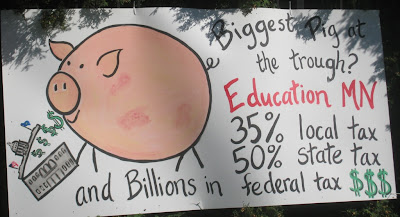 Biggest Pig at
the trough?
Education MN
35% local tax
50% state tax
and Billions in federal tax $$$
$$$$